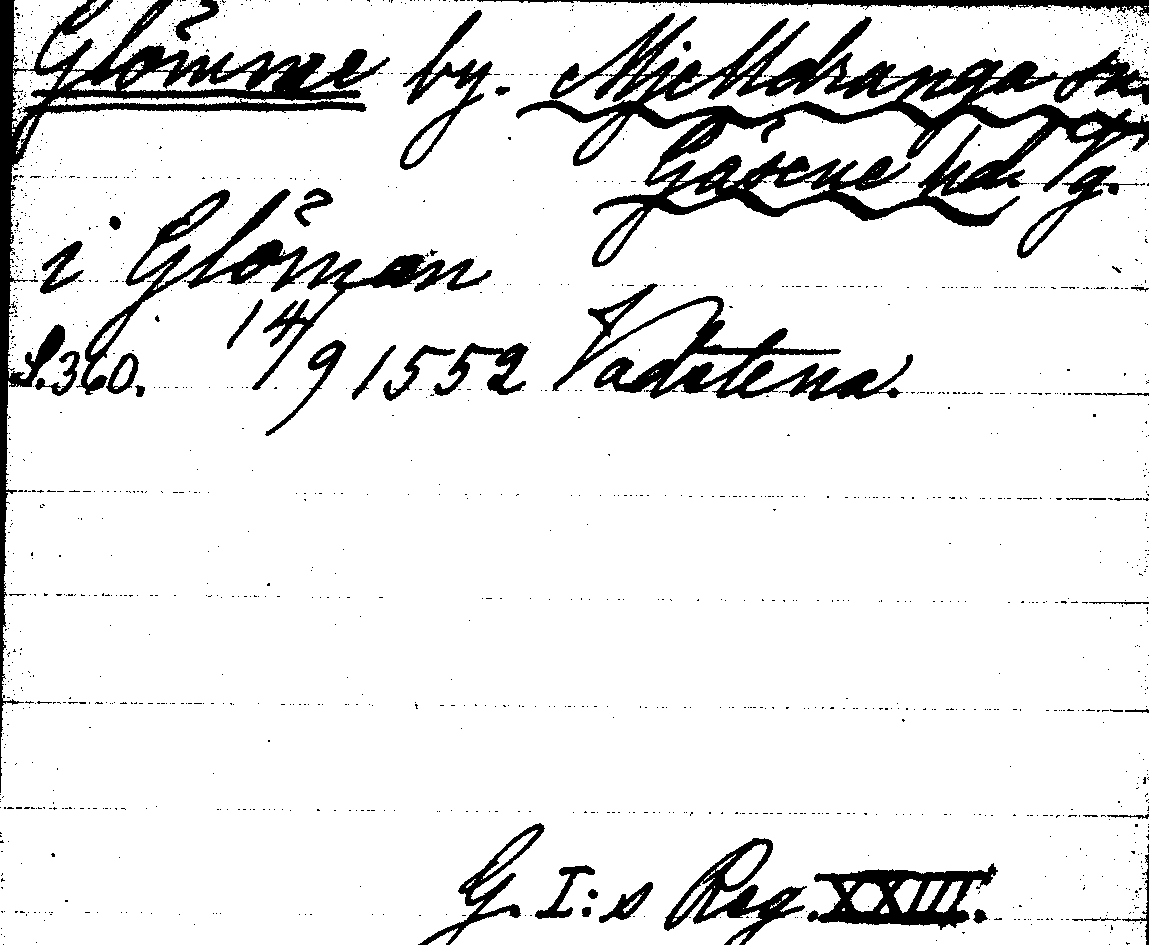 Glömme by. Mjelldranga sn.
Gäsene hd. Vg.
i Glöman
S. 360. 14/9 1552 Vadstena.
G. I:s Reg. XXIII.